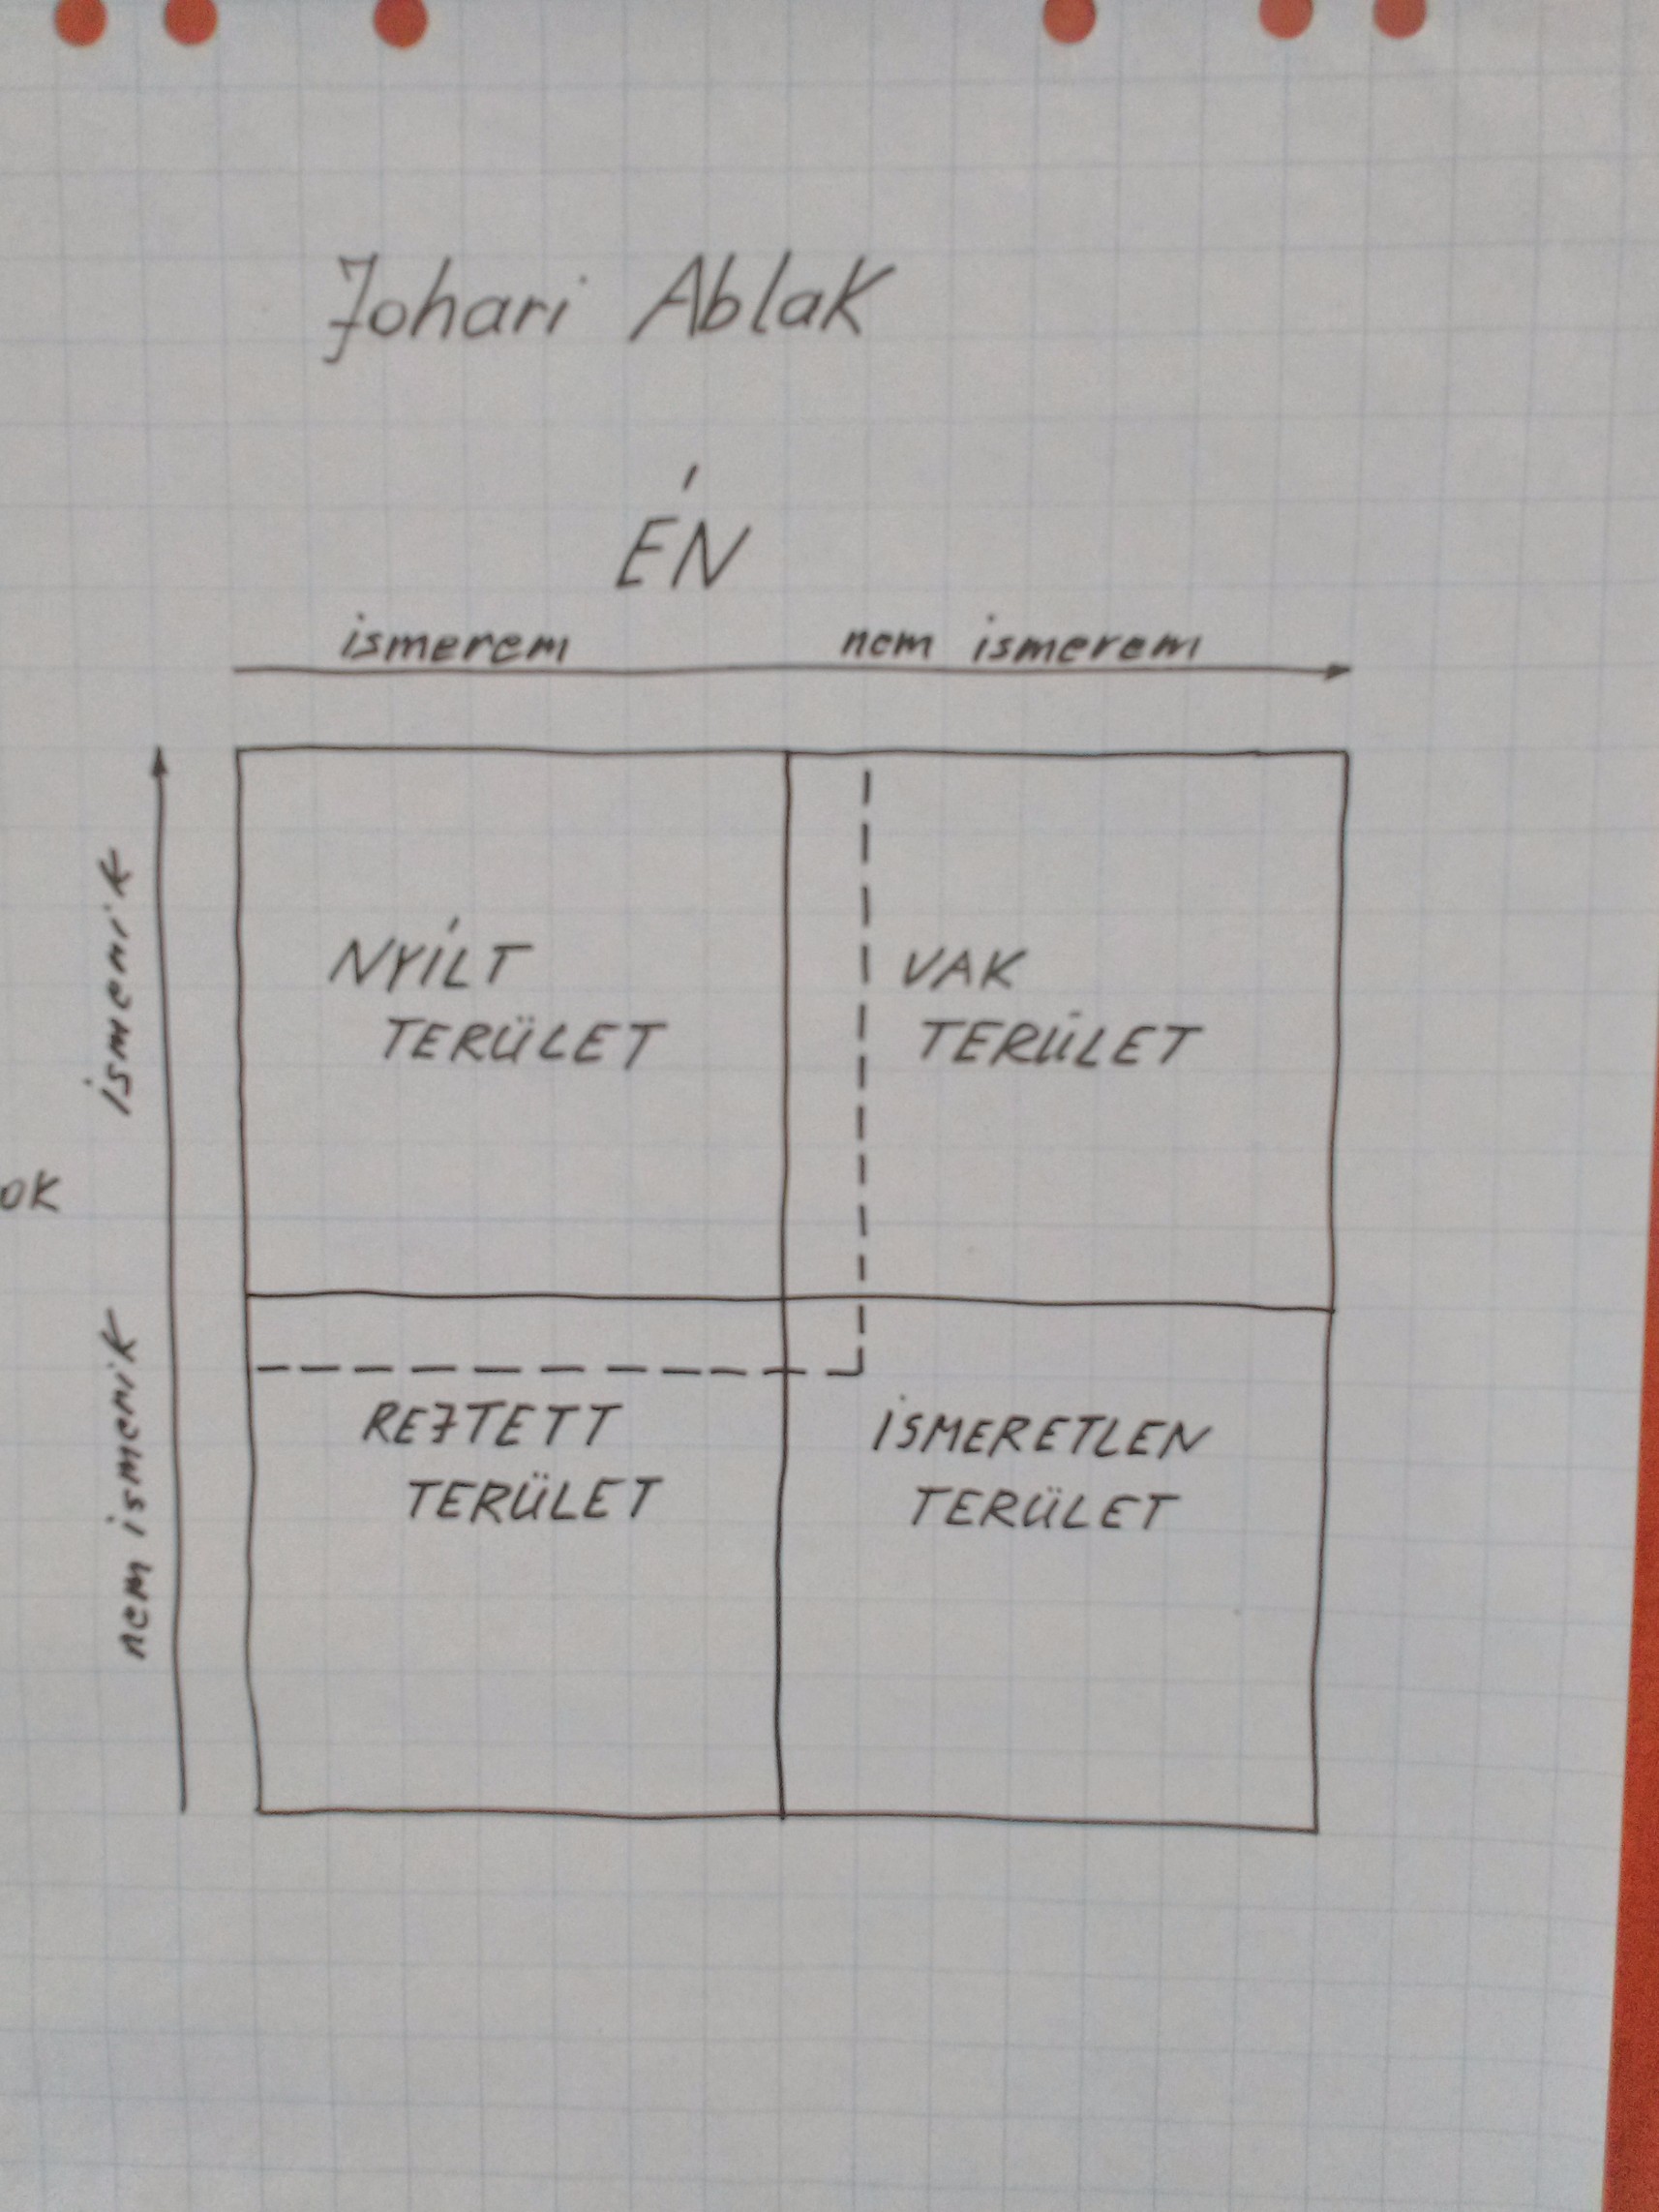 Johari Ablak
ÉN
ismerem nem ismerem
ismerik
NYÍLT
TERÜLET
VAK
TERÜLET
ok
nem ismerik
REJTETT
TERÜLET
ISMERETLEN
TERÜLET